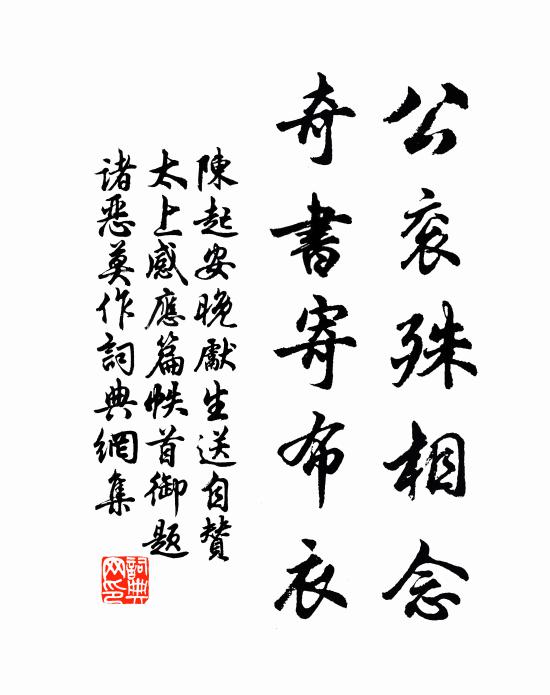 公衮殊相念
奇書寄布衣
陳起安晚獻生送自贊
太上感應篇帙首御題
諸惡莫作詞典網集
詞典網印